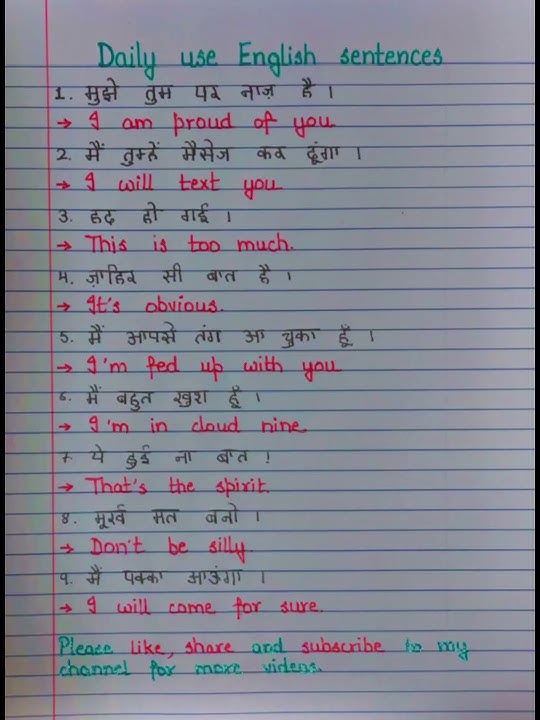 Daily use English sentences
1. मुझे तुम पर नाज़ है ।
→ I am proud of you
2. मैं तुम्हें मैसेज कर दूंगा ।
→ I will text you
3. हद हो गई ।
→ This is too much.
4. ज़ाहिर सी बात है ।
→ It's obvious.
5. मैं आपसे तंग आ चुका हूँ ।
→ I'm fed up with you
6. मैं बहुत खुश हूँ ।
→ I'm in cloud nine
7. ये हुई ना बात !
→ That's the spirit.
8. मूर्ख मत बनो ।
→ Don't be silly.
9. मैं पक्का आऊंगा ।
→ I will come for sure.
Please like, share and subscribe to my
channel for more videos.